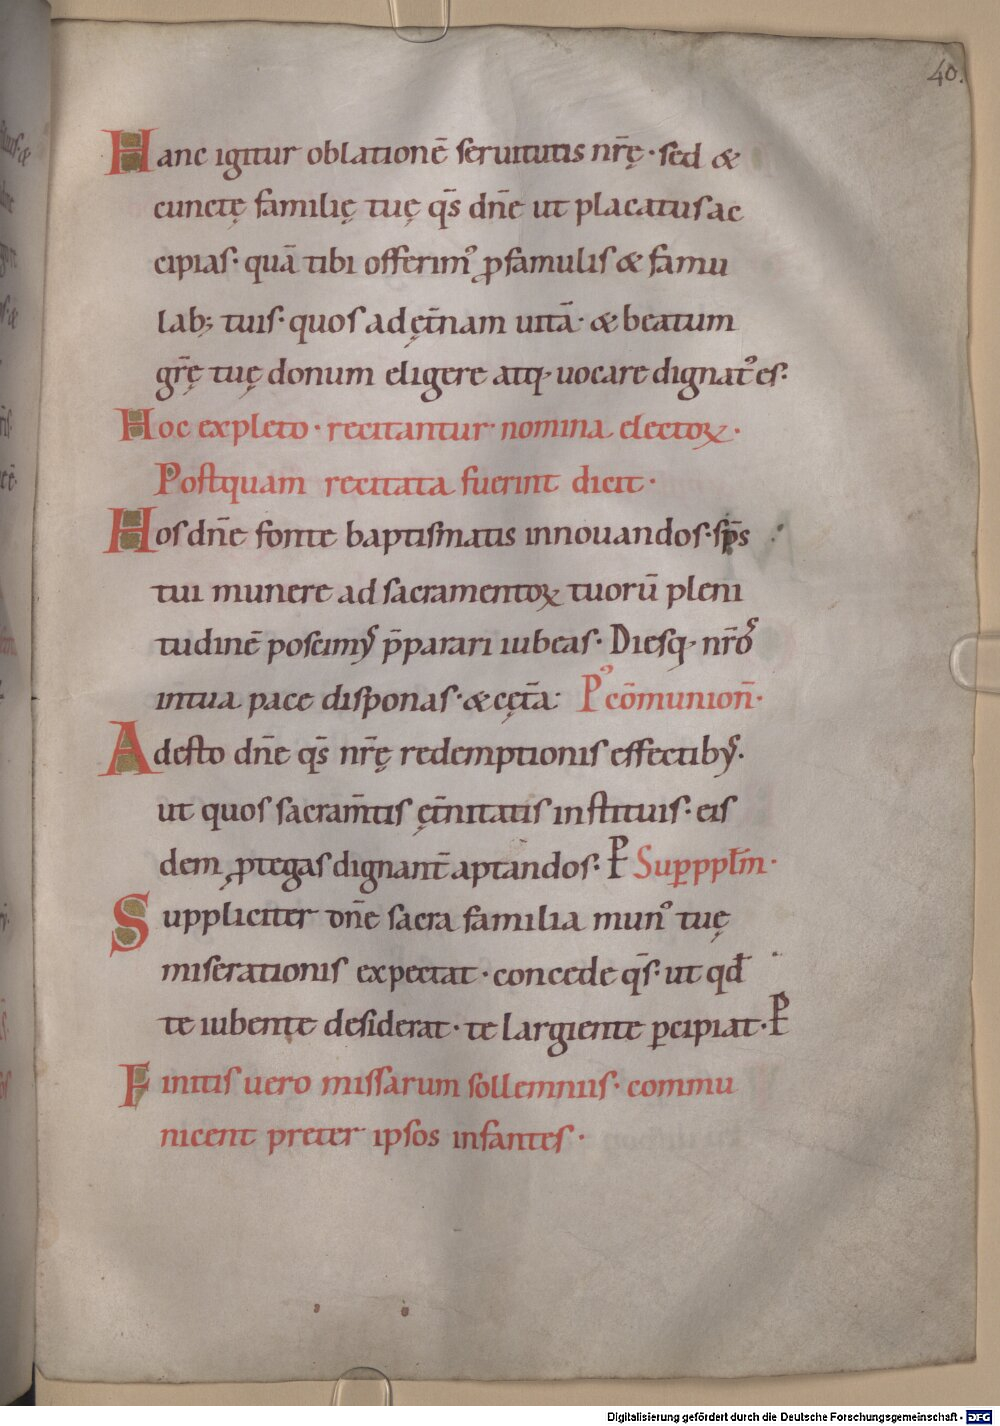 40.
Hanc igitur oblationē seruitutis nr̄ę · sed &
cunctę familię tuę qs̄ dn̄e ut placatus ac
cipias · quā tibi offerimꝰ ꝓ famulis & famu
lab; tuis · quos ad ęt̄nam uitā · & beatum
gr̄ę tuę donum eligere atq· uocare dignatꝰ es·
Hoc expleto · recitantur nomina electoꝝ ·
Postquam recitata fuerint dicit ·
Hos dn̄e fonte baptismatis innouandos · sp̄s
tui munere ad sacramentoꝝ tuorū pleni
tudinē poscimꝰ p̄parari iubeas · Diesq· nr̄oꝰ
in tua pace disponas · & cęt̄a· Pꝰ cōmunion̄·
Adesto dn̄e qs̄ nr̄ę redemptionis effectibꝰ·
ut quos sacram̄tis ęt̄nitatis instituis · eis
dem ꝓtegas dignant̄ aptandos · P Sup̱ pp̄lm̄ ·
Suppliciter dn̄e sacra familia munꝰ tuę
miserationis expectat · concede qs̄ · ut qđ
te iubente desiderat · te largiente ꝑcipiat · P
Finitis uero missarum sollemniis · commu
nicent preter ipsos infantes ·
Digitalisierung gefördert durch die Deutsche Forschungsgemeinschaft - DFG